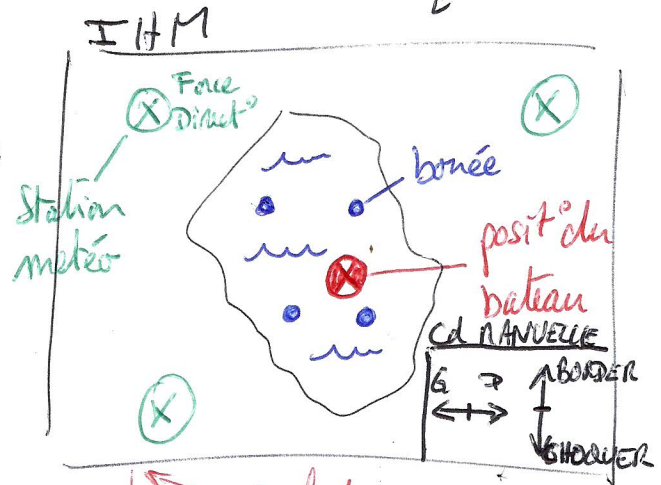 IHM
Force
Direct°
Station
météo
bouée
posit° du
bateau
Cd MANUELLE
G D
BORDER
CHOQUER